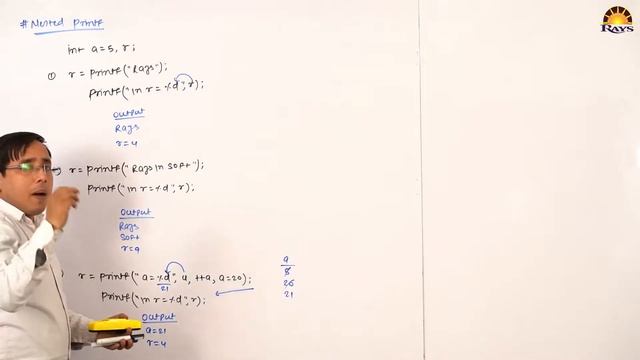 # Nested Printf
RAYS
int a=5, r;
① r = printf("Rays");
printf("\n r = %d", r);
Output
Rays
r=4
r= printf("Rays \n Soft");
printf("\n r=%d", r);
Output
Rays
Soft
r=9
r = printf("a=%d", a, ++a, a=20);
21
printf("\n r=%d", r);
Output
a=21
r=4
a
5
20
21